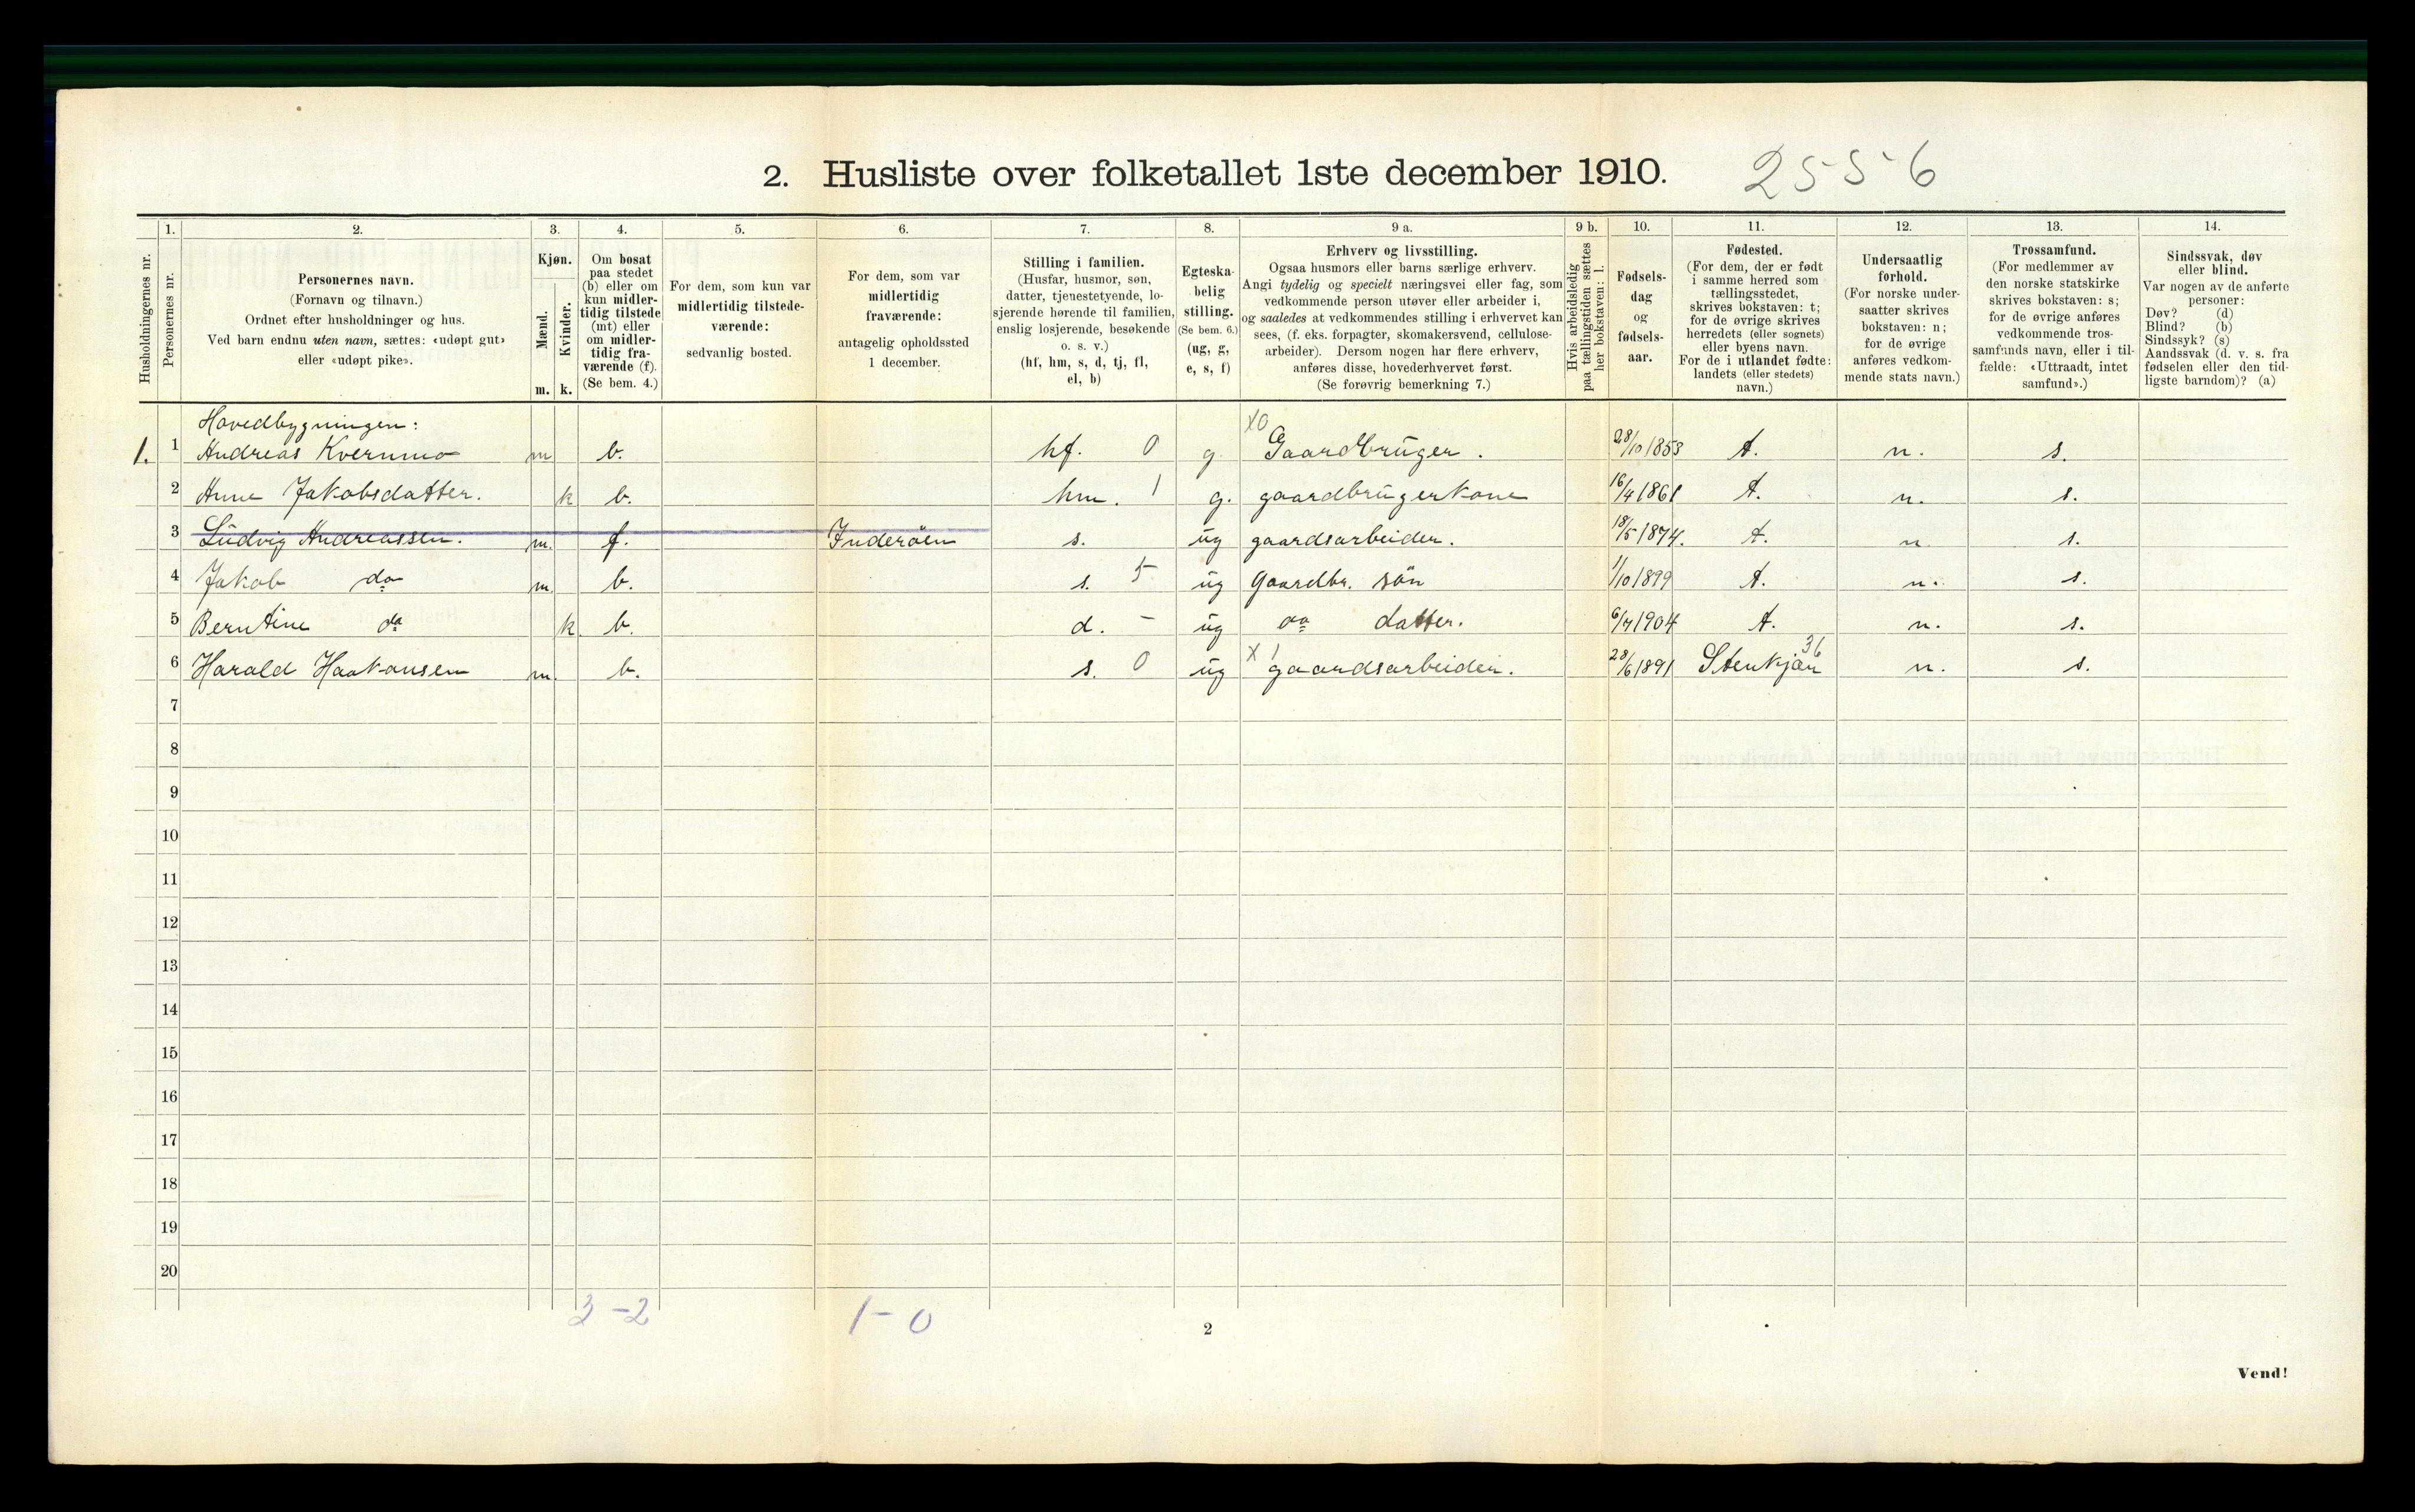 2. Husliste over folketallet 1ste december 1910. 2556
Husholdningernes nr.
1.
Personernes nr.
2.
Personernes navn.
(Fornavn og tilnavn.)
Ordnet efter husholdninger og hus.
Ved barn endnu uten navn, sættes: «udøpt gut»
eller «udøpt pike».
3.
Kjøn.
Mænd.
Kvinder.
m. k.
4.
Om bosat
paa stedet
(b) eller om
kun midler-
tidig tilstede
(mt) eller
om midler-
tidig fra-
værende (f).
(Se bem. 4.)
5.
For dem, som kun var
midlertidig tilstede-
værende:
sedvanlig bosted.
6.
For dem, som var
midlertidig
fraværende:
antagelig opholdssted
1 december.
7.
Stilling i familien.
(Husfar, husmor, søn,
datter, tjenestetyende, lo-
sjerende hørende til familien,
enslig losjerende, besøkende
o. s. v.)
(hf, hm, s, d, tj, fl,
el, b)
8.
Egteska-
belig
stilling.
(Se bem. 6.)
(ug, g,
e, s, f)
9 a.
Erhverv og livsstilling.
Ogsaa husmors eller barns særlige erhverv.
Angi tydelig og specielt næringsvei eller fag, som
vedkommende person utøver eller arbeider i,
og saaledes at vedkommendes stilling i erhvervet kan
sees, (f. eks. forpagter, skomakersvend, cellulose-
arbeider). Dersom nogen har flere erhverv,
anføres disse, hovederhvervet først.
(Se forøvrig bemerkning 7.)
9 b.
Hvis arbeidsledig
paa tællingstiden sættes
her bokstaven: l.
10.
Fødsels-
dag
og
fødsels-
aar.
11.
Fødested.
(For dem, der er født
i samme herred som
tællingsstedet,
skrives bokstaven: t;
for de øvrige skrives
herredets (eller sognets)
eller byens navn.
For de i utlandet fødte:
landets (eller stedets)
navn.)
12.
Undersaatlig
forhold.
(For norske under-
saatter skrives
bokstaven: n;
for de øvrige
anføres vedkom-
mende stats navn.)
13.
Trossamfund.
(For medlemmer av
den norske statskirke
skrives bokstaven: s;
for de øvrige anføres
vedkommende tros-
samfunds navn, eller i til-
fælde: «Uttraadt, intet
samfund».)
14.
Sindssvak, døv
eller blind.
Var nogen av de anførte
personer:
Døv? (d)
Blind? (b)
Sindssyk? (s)
Aandssvak (d. v. s. fra
fødselen eller den tid-
ligste barndom)? (a)
Hovedbygningen: X0
1. 1 Andreas Kvernmo m b. hf. 0 g Gaardbruger. 28/10 1853 t. n. s.
2 Anne Jakobsdatter. k b. hm. 1 g. gaardbrugerkone 16/4 1861 t. n. s.
3 Ludvig Andreassen. m. f. Inderöen s. ug gaardsarbeider. 18/5 1874. t. n s.
4 Jakob do m. b. s. 5 ug Gaardbr. sön 1/10 1899 t. n. s.
5 Berntine do k b. d. - ug do datter. 6/7 1904 t. n. s.
6 Harald Haakonsen m. b. s. 0 ug X 1 gaardsarbeider. 28/6 1891 Stenkjær 36 n. s.
7
8
9
10
11
12
13
14
15
16
17
18
19
20
3-2 1-0
2
Vend!